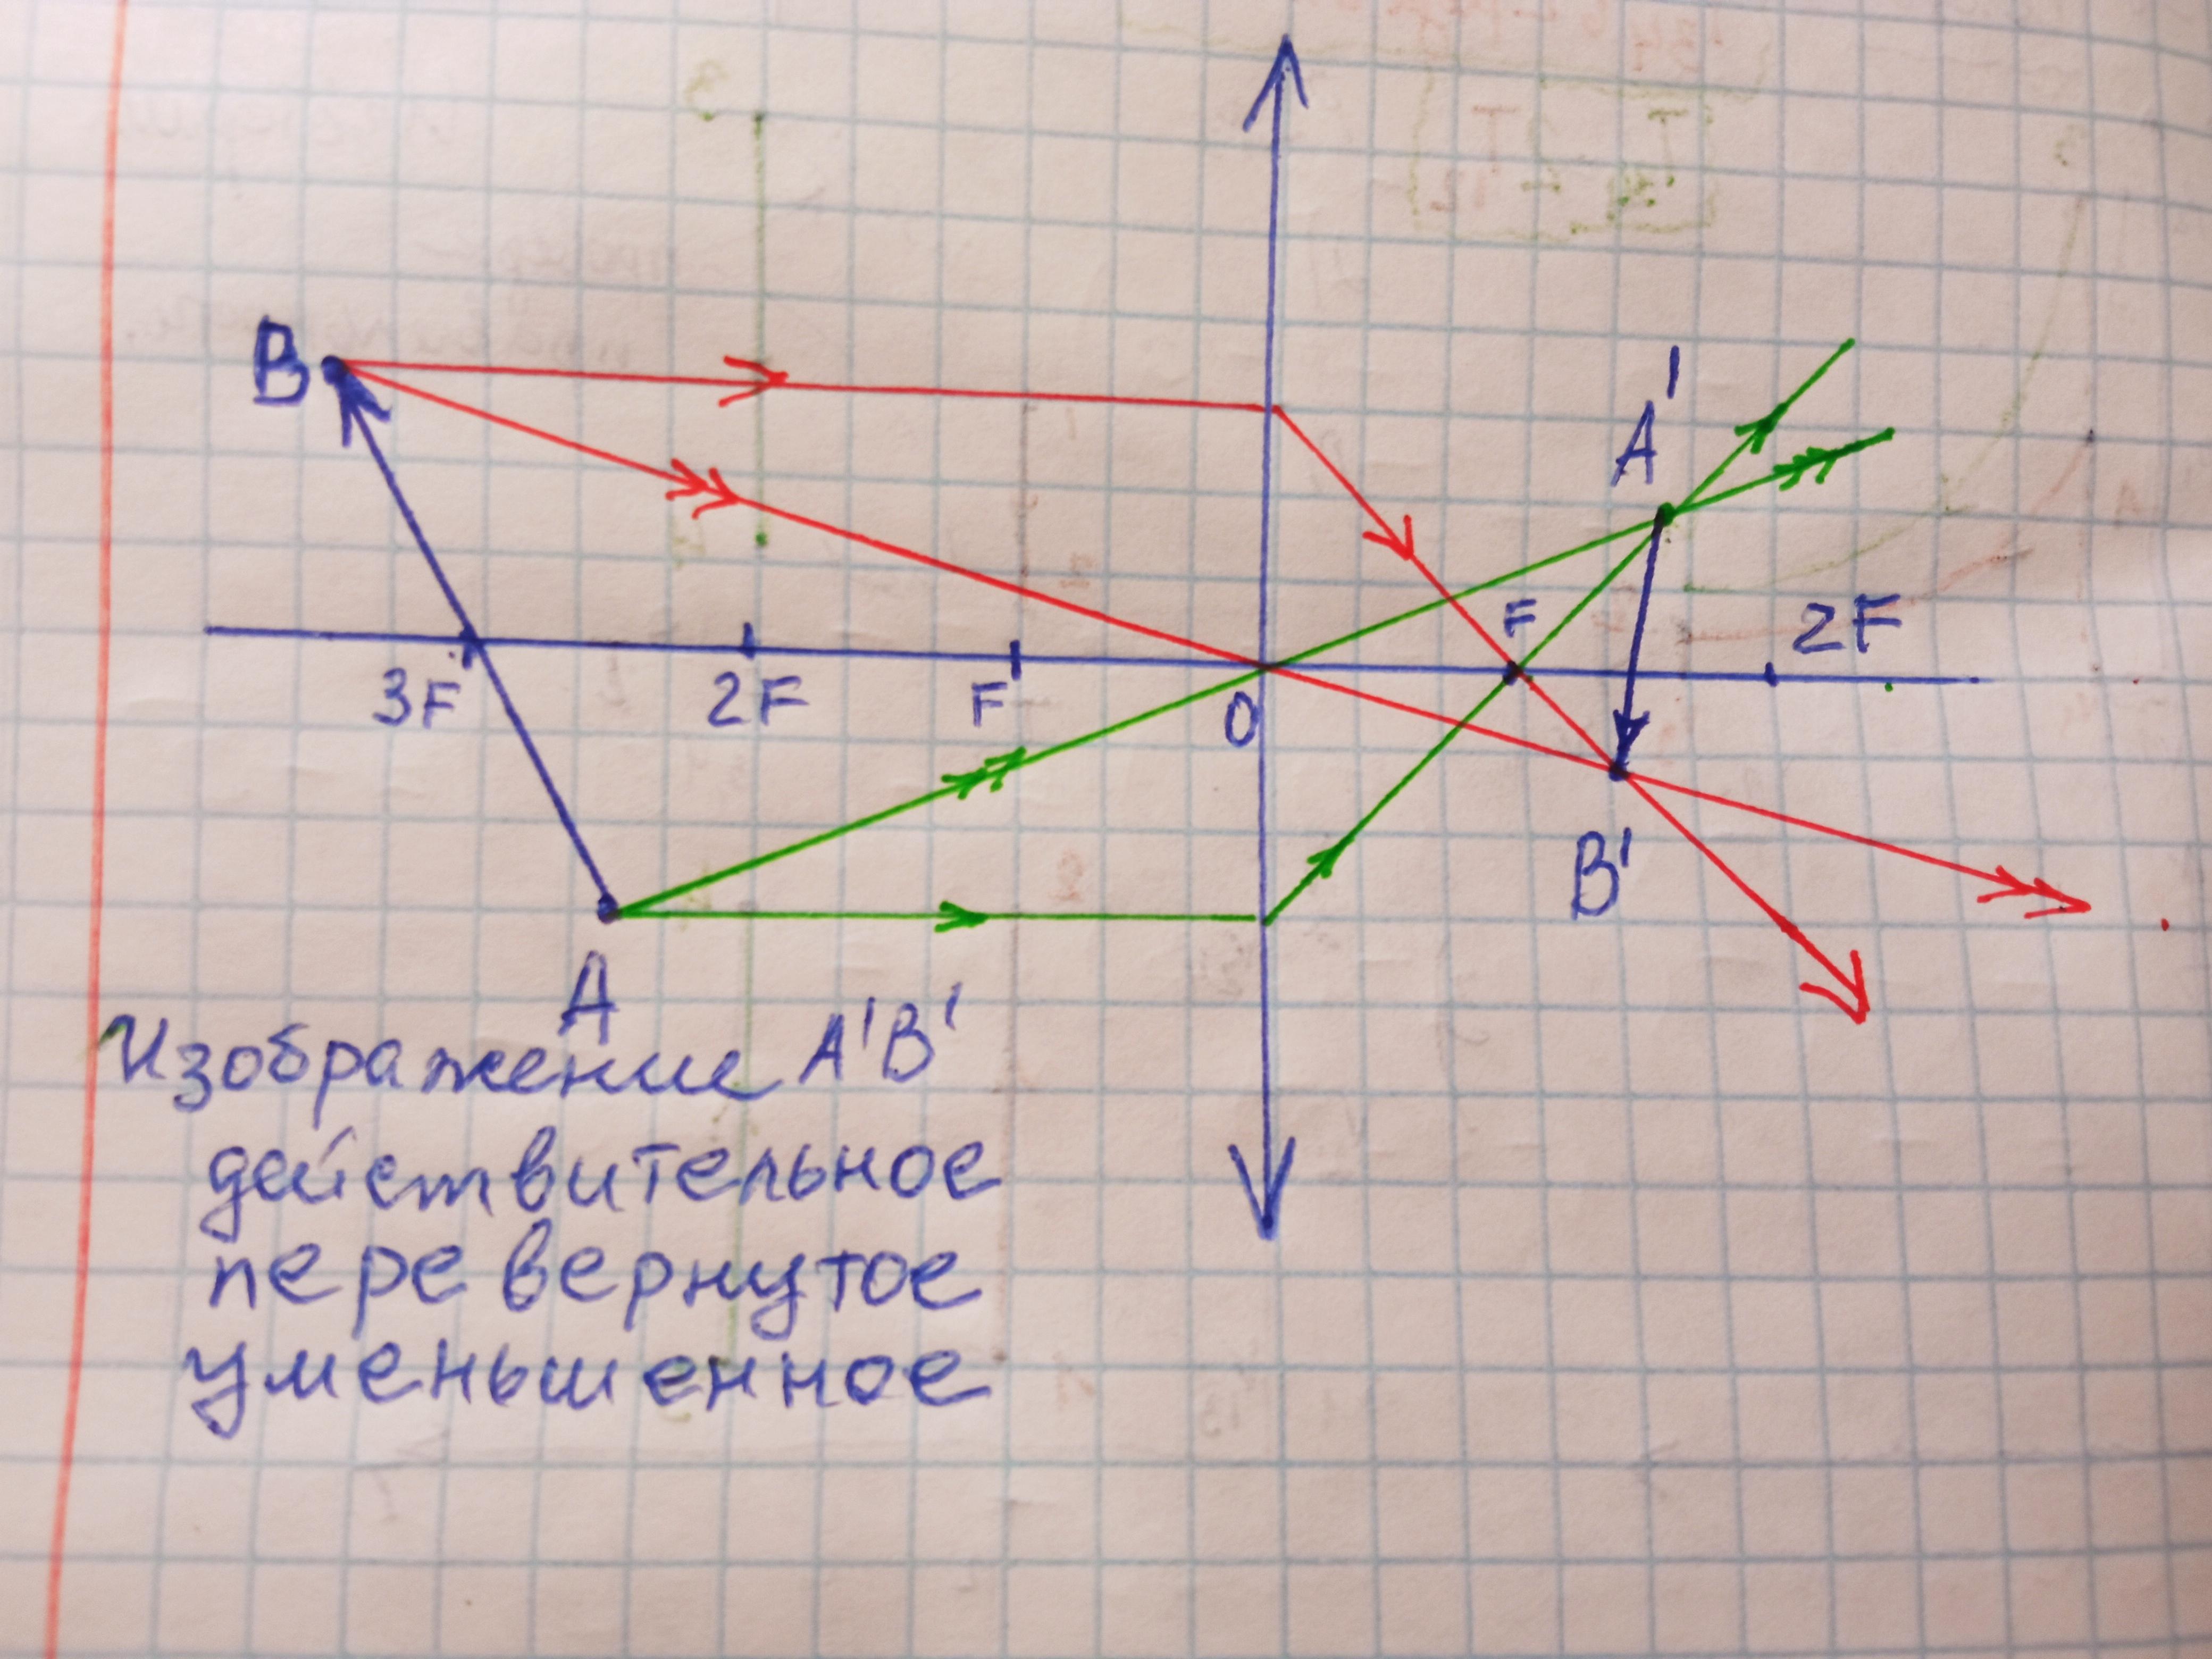 B
A'
F
2F
3F
2F
F
O
B'
A
Изображение A'B'
действительное
перевернутое
уменьшенное